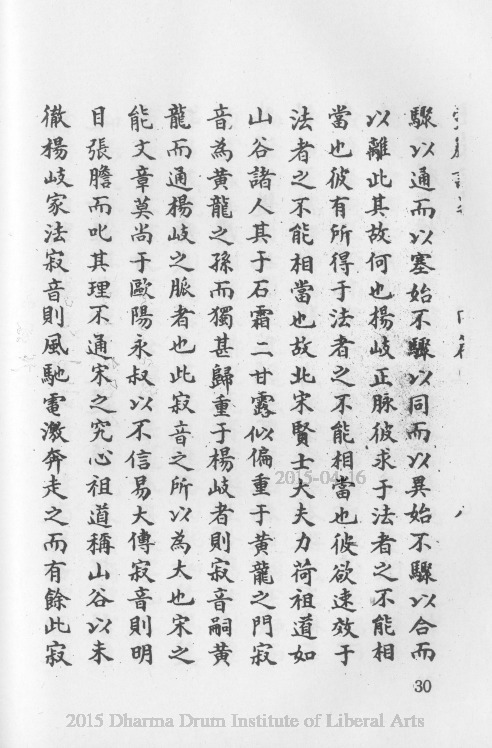 驟以通而以塞始不驟以同而以異始不驟以合而
以離此其故何也楊岐正脉彼求于法者之不能相
當也彼有所得于法者之不能相當也彼欲速效于
法者之不能相當也故北宋賢士大夫力荷祖道如
山谷諸人其于石霜二甘露似偏重于黃龍之門寂
音為黃龍之孫而獨甚歸重于楊岐者則寂音嗣黃
龍而通楊岐之脈者也此寂音之所以為大也宋之
能文章莫尚于歐陽永叔以不信易大傳寂音則明
目張膽而叱其理不通宋之究心祖道稱山谷以未
徹楊岐家法寂音則風馳電激奔走之而有餘此寂
30
2015-04-16
2015 Dharma Drum Institute of Liberal Arts